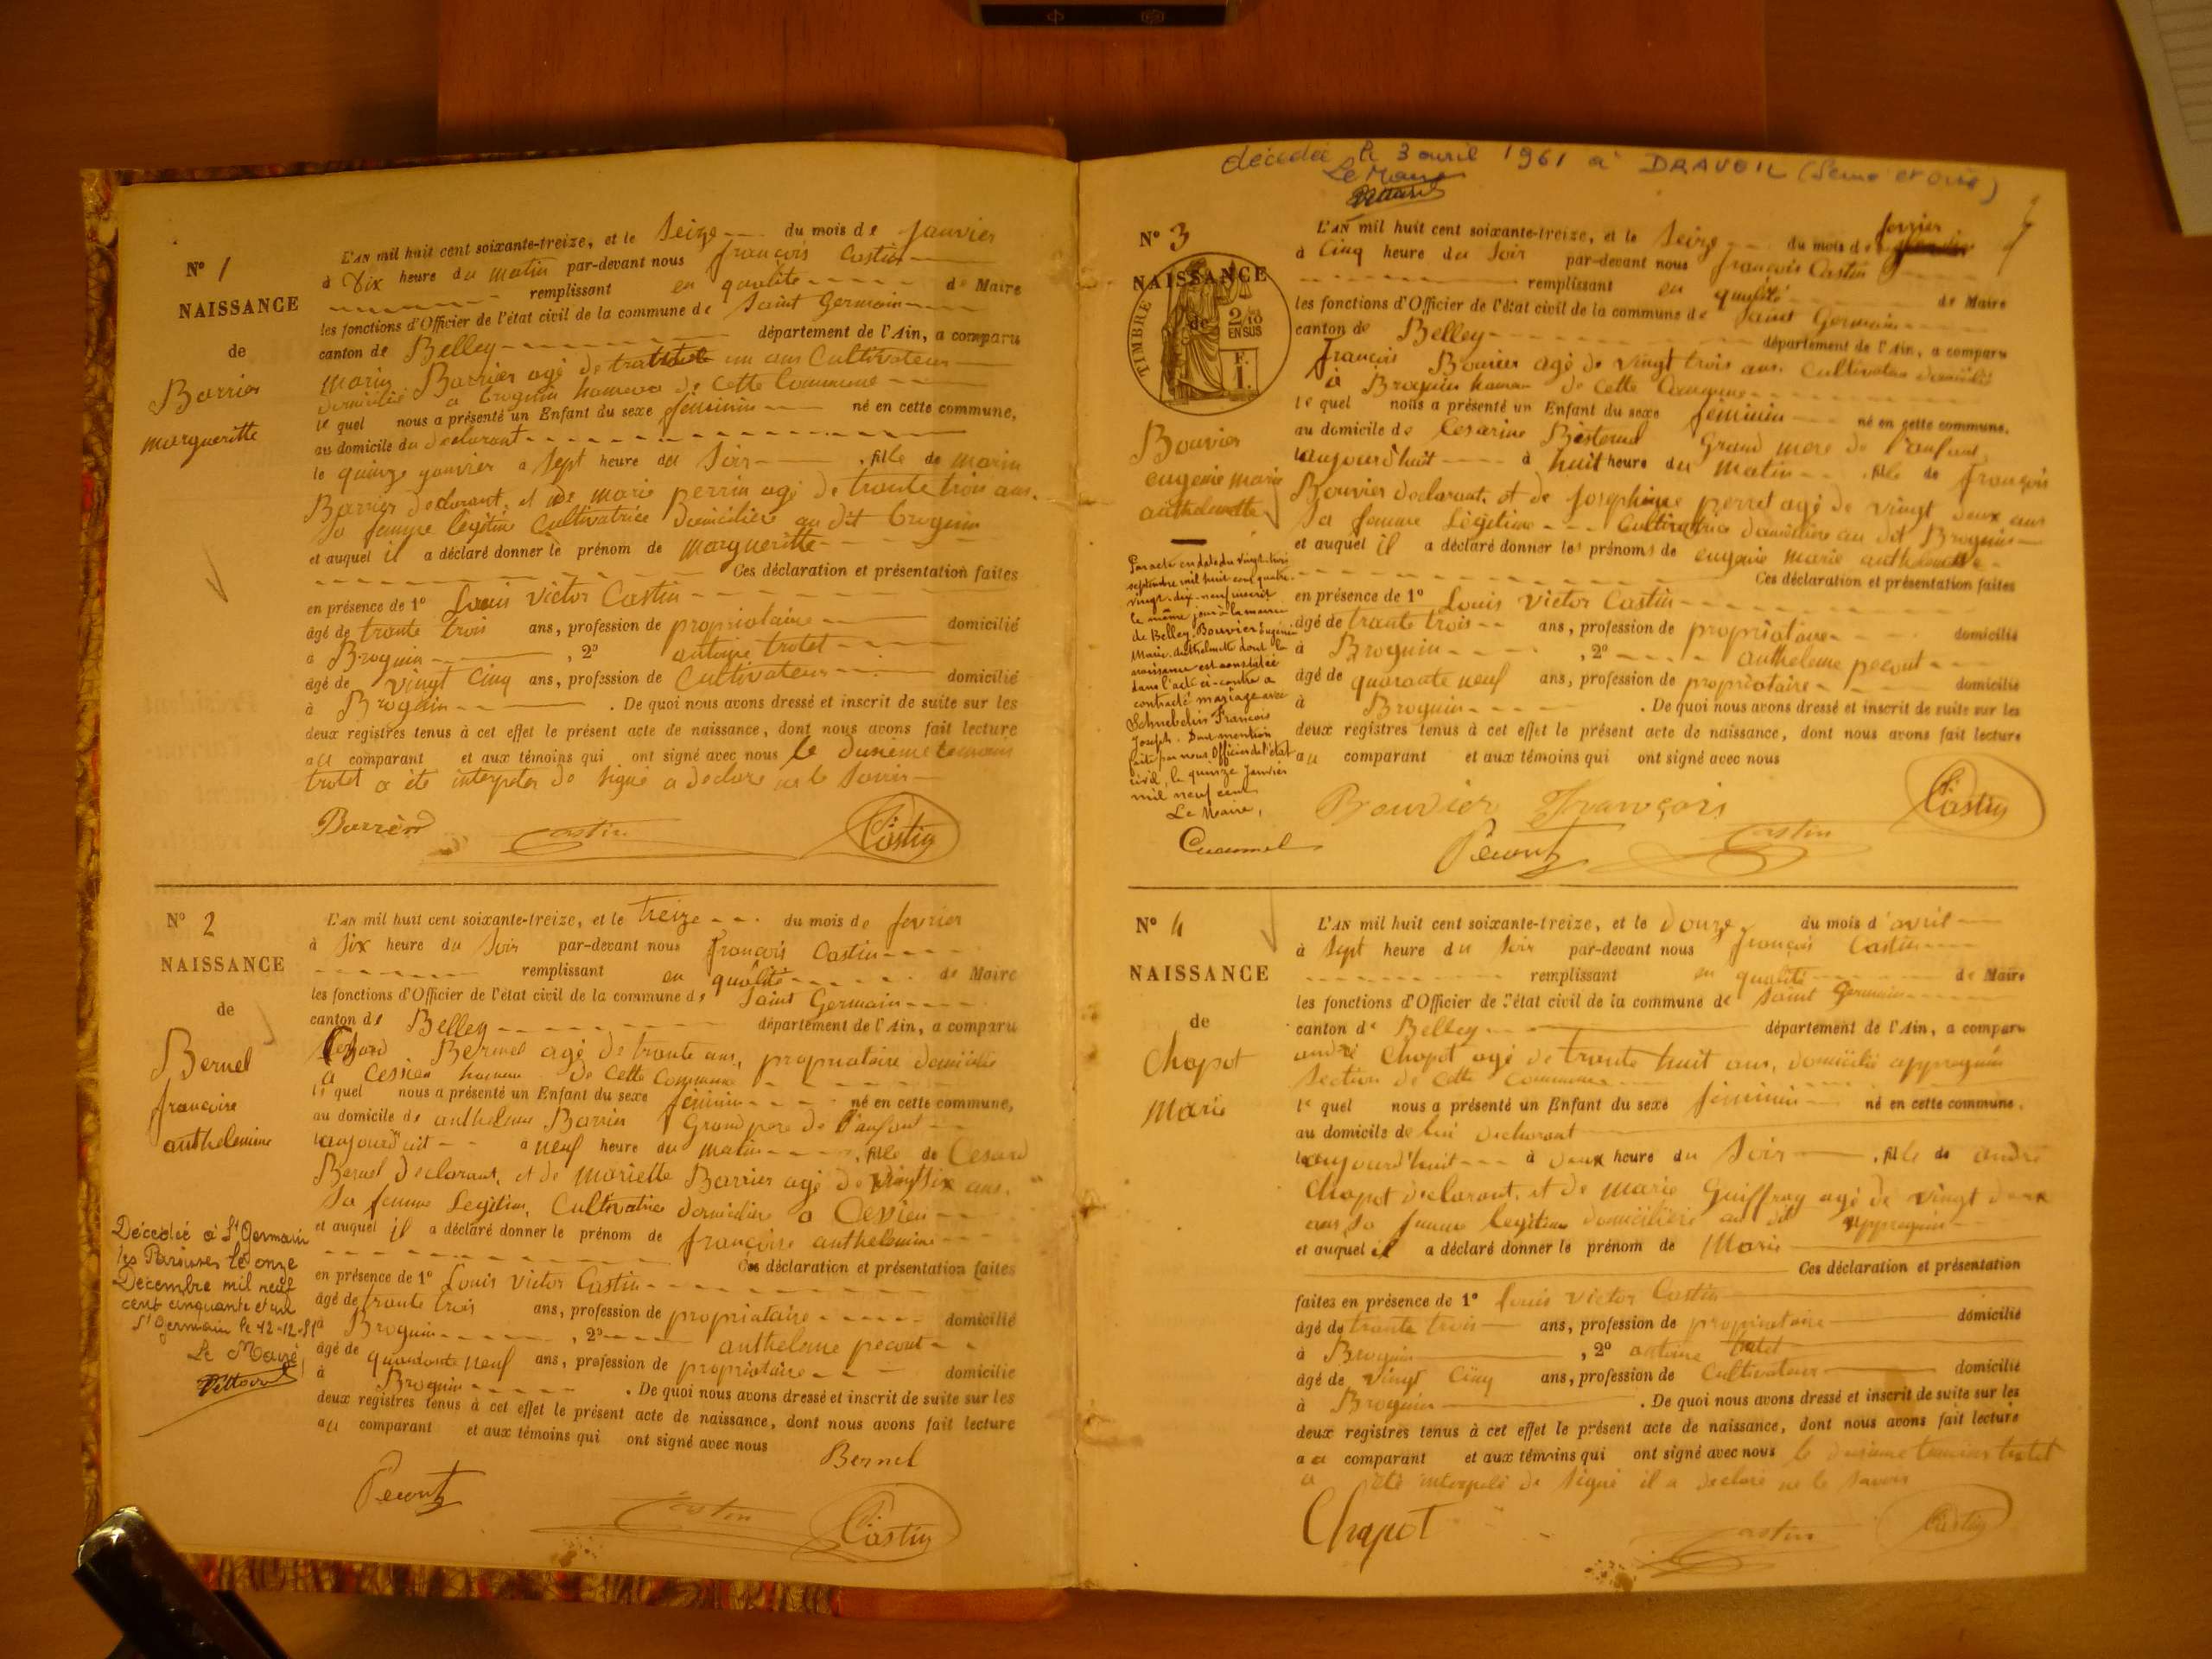 N° 1
NAISSANCE
de
Barrier
margueritte
L'AN mil huit cent soixante-treize, et le Seize du mois de janvier
à Dix heure du matin par-devant nous françois Castin
remplissant en qualité de Maire
les fonctions d'Officier de l'état civil de la commune de Saint Germain
canton de Belley département de l'Ain, a comparu
marin Barrier agé de un ans Cultivateur
domicilié a brognin hameau de cette Commune
le quel nous a présenté un Enfant du sexe féminin né en cette commune,
au domicile du declarant
le quinze janvier a Sept heure du Soir, fille de marin
Barrier declarant, et de marie perrin agé de trante trois ans.
Sa femme legitime Cultivatrice Domicilière au dit brognin
et auquel il a déclaré donner le prénom de margueritte
Ces déclaration et présentation faites
en présence de 1° Louis victor Castin
âgé de trante trois ans, profession de propriataire domicilié
à Brognin, 2° antoine trotet
âgé de vingt cinq ans, profession de Cultivateur domicilié
à Brognin. De quoi nous avons dressé et inscrit de suite sur les
deux registres tenus à cet effet le présent acte de naissance, dont nous avons fait lecture
au comparant et aux témoins qui ont signé avec nous le dusieme temoins
trotet a été de Signé a declare ne le Savoir
Castin
Castin
N° 2
NAISSANCE
de
Bernel
françoise
anthelmine
L'AN mil huit cent soixante-treize, et le treize du mois de fevrier
à Six heure du Soir par-devant nous françois Castin
remplissant en qualité de Maire
les fonctions d'Officier de l'état civil de la commune de Saint Germain
canton de Belley département de l'Ain, a comparu
Bernel agé de trante ans, propriataire domicilié
a Cessien hameau de cette commune
le quel nous a présenté un Enfant du sexe féminin né en cette commune,
au domicile de anthelme Barrier Grand pere de l'anfant
aujourd'uit a neuf heure du matin, fille de Cesard
Bernel declarant, et de mariette Barrier agé de vingt six ans.
Sa femme Legitime, Cultivatrice domicilière a Cessien
et auquel il a déclaré donner le prénom de françoise anthelmine
Ces déclaration et présentation faites
en présence de 1° Louis victor Castin
âgé de trante trois ans, profession de propriataire domicilié
à Brognin, 2° anthelme pecout
âgé de quarante neuf ans, profession de propriataire domicilié
à Brognin. De quoi nous avons dressé et inscrit de suite sur les
deux registres tenus à cet effet le présent acte de naissance, dont nous avons fait lecture
au comparant et aux témoins qui ont signé avec nous
Bernel
Pecout
Castin
Castin
Décédée à St Germain
les Paroisses le onze
Décembre mil neuf
cent cinquante et un
St Germain le 12-12-51
Le Maire,
décédée le 3 avril 1961 à DRAVEIL (Seine et Oise)
Le Maire
N° 3
NAISSANCE
de
TIMBRE
2/10
EN SUS
F.
1.
Bouvier
eugenie marie
anthelmette
L'AN mil huit cent soixante-treize, et le Seize du mois de fevrier
à Cinq heure du Soir par-devant nous françois Castin
remplissant en qualité de Maire
les fonctions d'Officier de l'état civil de la commune de Saint Germain
canton de Belley département de l'Ain, a comparu
françois Bouvier agé de vingt trois ans. Cultivateur domicilié
à Brognin hamau de cette Commune
le quel nous a présenté un Enfant du sexe féminin né en cette commune.
au domicile de Cesarine Grand mere de l'anfant
aujourd'huit à huit heure du matin, fille de françois
Bouvier declarant, et de josephine perret agé de vingt deux ans
Sa femme Légitime Cultivatrice domicilière au dit Brognin
et auquel il a déclaré donner les prénoms de eugenie marie anthelmette
Ces déclaration et présentation faites
en présence de 1° Louis victor Castin
âgé de trante trois ans, profession de propriataire domicilié
à Brognin, 2° anthelme pecout
âgé de quarante neuf ans, profession de propriataire domicilié
à Brognin. De quoi nous avons dressé et inscrit de suite sur les
deux registres tenus à cet effet le présent acte de naissance, dont nous avons fait lecture
au comparant et aux témoins qui ont signé avec nous
Bouvier François
Castin
Pecout
Castin
Par acte en date du vingt-trois
septembre mil huit cent quatre-
vingt-dix-neuf inscrit
le même jour à la mairie
de Belley, Bouvier Eugénie
Marie Anthelmette dont la
naissance est constatée
dans l'acte ci-contre a
contracté mariage avec
Schnebelin François
Joseph. Dont mention
faite par nous Officier de l'état
civil, le quinze Janvier
mil neuf cent
Le Maire,
N° 4
NAISSANCE
de
Chapot
Marie
L'AN mil huit cent soixante-treize, et le Douze du mois d'avril
à Sept heure du Soir par-devant nous françois Castin
remplissant en qualité de Maire
les fonctions d'Officier de l'état civil de la commune de Saint Germain
canton de Belley département de l'Ain, a comparu
andré Chapot agé de trante huit ans, domicilié appregnin
Section de cette commune
le quel nous a présenté un Enfant du sexe féminin né en cette commune.
au domicile de lui declarant
aujourd'huit à deux heure du Soir, fille de andré
Chapot declarant, et de marie Guiffray agé de vingt deux
ans Sa femme legitime domicilière au dit appregnin
et auquel il a déclaré donner le prénom de Marie
Ces déclaration et présentation
faites en présence de 1° Louis victor Castin
âgé de trante trois ans, profession de propriataire domicilié
à Brognin, 2° antoine trotet
âgé de vingt Cinq ans, profession de Cultivateur domicilié
à Brognin. De quoi nous avons dressé et inscrit de suite sur les
deux registres tenus à cet effet le présent acte de naissance, dont nous avons fait lecture
au comparant et aux témoins qui ont signé avec nous le dusieme temoins trotet
a été interpelé de Signé il a declaré ne le Savoir
Chapot
Castin
Castin